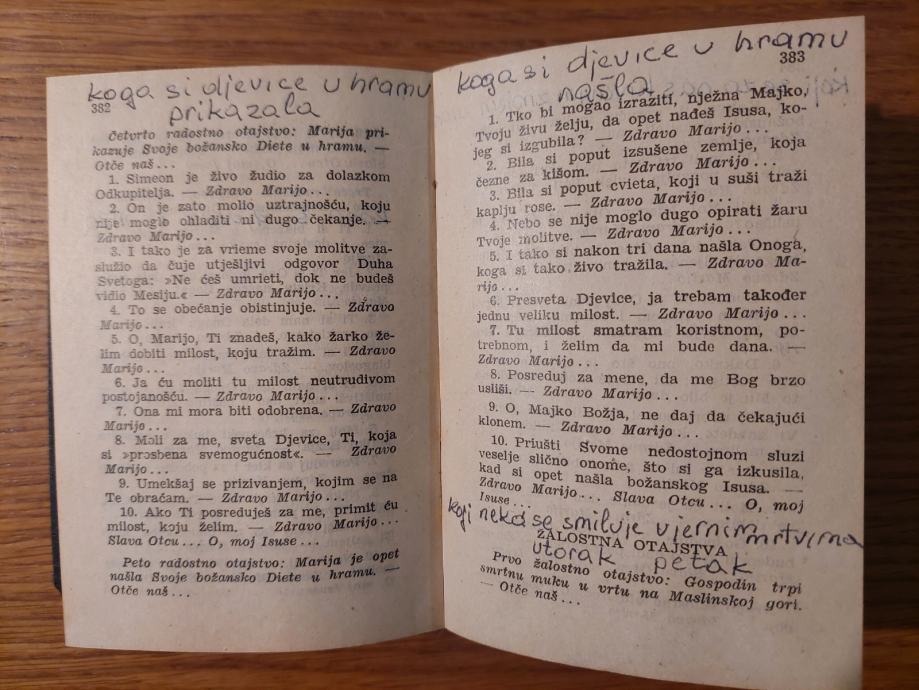 koga si djevice u hramu
prikazala
382
četvrto radostno otajstvo: Marija pri-
kazuje Svoje božansko Diete u hramu. —
Otče naš...
1. Simeon je živo žudio za dolazkom
Odkupitelja. — Zdravo Marijo...
2. On je zato molio uztrajnošću, koju
nije moglo ohladiti ni dugo čekanje. —
Zdravo Marijo...
3. I tako je za vrieme svoje molitve za-
služio da čuje utješljivi odgovor Duha
Svetoga: »Ne ćeš umrieti, dok ne budeš
vidio Mesiju.« — Zdravo Marijo...
4. To se obećanje obistinjuje. — Zdravo
Marijo...
5. O, Marijo, Ti znadeš, kako žarko že-
lim dobiti milost, koju tražim. — Zdravo
Marijo...
6. Ja ću moliti tu milost neutrudivom
postojanošću. — Zdravo Marijo...
7. Ona mi mora biti odobrena. — Zdravo
Marijo...
8. Moli za me, sveta Djevice, Ti, koja
si »prosbena svemogućnost«. — Zdravo
Marijo...
9. Umekšaj se prizivanjem, kojim se na
Te obraćam. — Zdravo Marijo...
10. Ako Ti posreduješ za me, primit ću
milost, koju želim. — Zdravo Marijo...
Slava Otcu... O, moj Isuse...
Peto radostno otajstvo: Marija je opet
našla Svoje božansko Diete u hramu. —
Otče naš...
koga si djevice u hramu
našla
383
1. Tko bi mogao izraziti, nježna Majko,
Tvoju živu želju, da opet nađeš Isusa, ko-
jeg si izgubila? — Zdravo Marijo...
2. Bila si poput izsušene zemlje, koja
čezne za kišom. — Zdravo Marijo...
3. Bila si poput cvieta, koji u suši traži
kaplju rose. — Zdravo Marijo...
4. Nebo se nije moglo dugo opirati žaru
Tvoje molitve. — Zdravo Marijo...
5. I tako si nakon tri dana našla Onoga,
koga si tako živo tražila. — Zdravo Ma-
rijo...
6. Presveta Djevice, ja trebam također
jednu veliku milost. — Zdravo Marijo...
7. Tu milost smatram koristnom, po-
trebnom, i želim da mi bude dana. —
Zdravo Marijo...
8. Posreduj za mene, da me Bog brzo
usliši. — Zdravo Marijo...
9. O, Majko Božja, ne daj da čekajući
klonem. — Zdravo Marijo...
10. Priušti Svome nedostojnom sluzi
veselje slično onome, što si ga izkusila,
kad si opet našla božanskog Isusa. —
Zdravo Marijo... Slava Otcu... O, moj
Isuse...
koji neka se smiluje vjernim mrtvima
ŽALOSTNA OTAJSTVA
utorak petak
Prvo žalostno otajstvo: Gospodin trpi
smrtnu muku u vrtu na Maslinskoj gori.
— Otče naš...